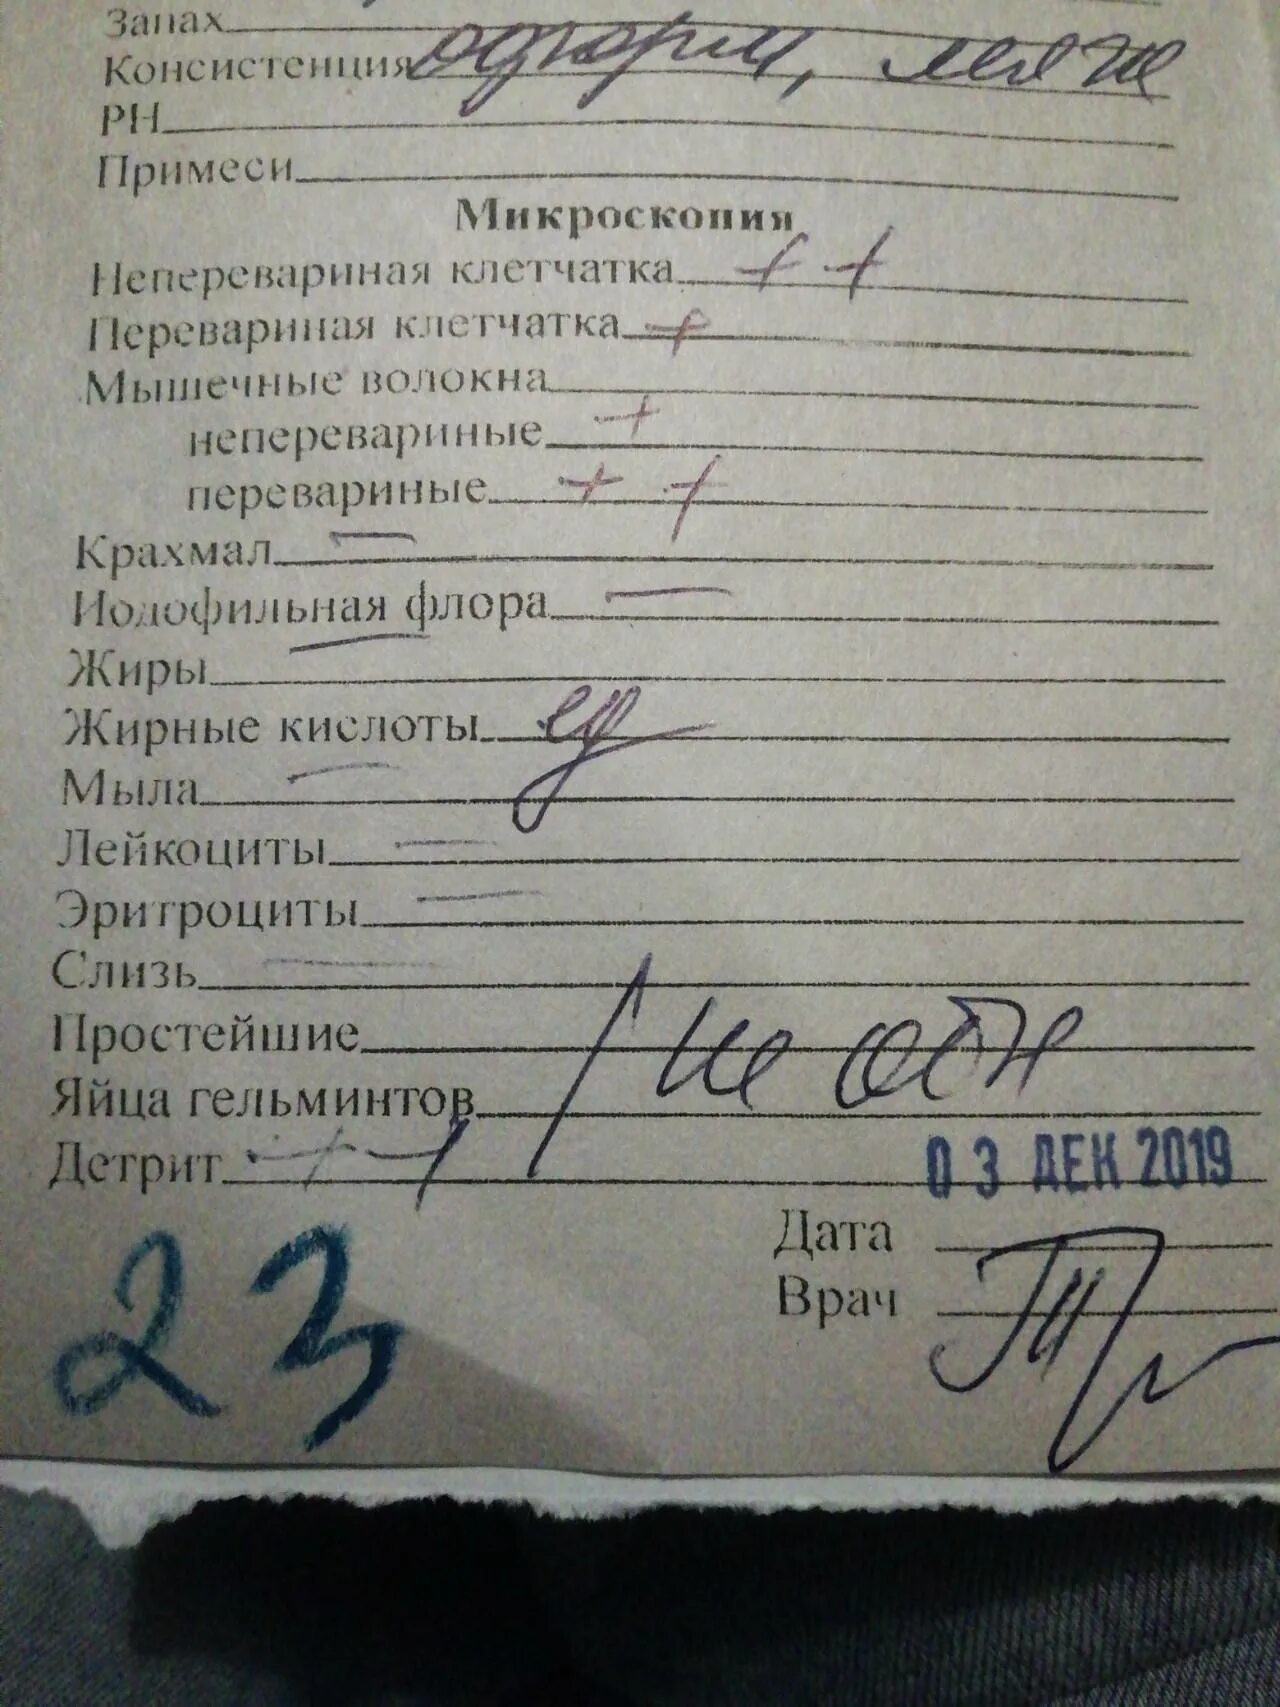 Запах
Консистенция оформ, мягк
РН
Примеси
Микроскопия
Неперевариная клетчатка + +
Перевариная клетчатка +
Мышечные волокна
неперевариные +
перевариные + +
Крахмал —
Иодофильная флора —
Жиры —
Жирные кислоты ед
Мыла —
Лейкоциты —
Эритроциты —
Слизь —
Простейшие
Яйца гельминтов не обн
Детрит + +
03 ДЕК 2019
Дата
Врач
23